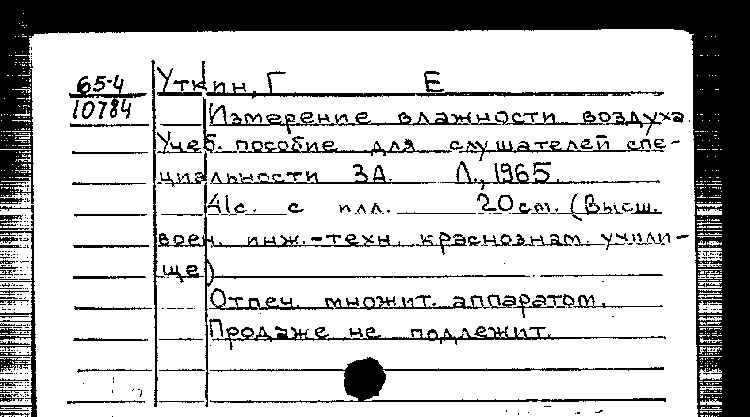 65-4 Уткин, Г Е
10784 Измерение влажности воздуха
Учеб. пособие для слушателей спе-
циальности ЗА. Л., 1965.
41с. с илл. 20 см. (Высш.
воен. инж.-техн. краснознам. учили-
ще)
Отпеч. множит. аппаратом.
Продаже не подлежит.